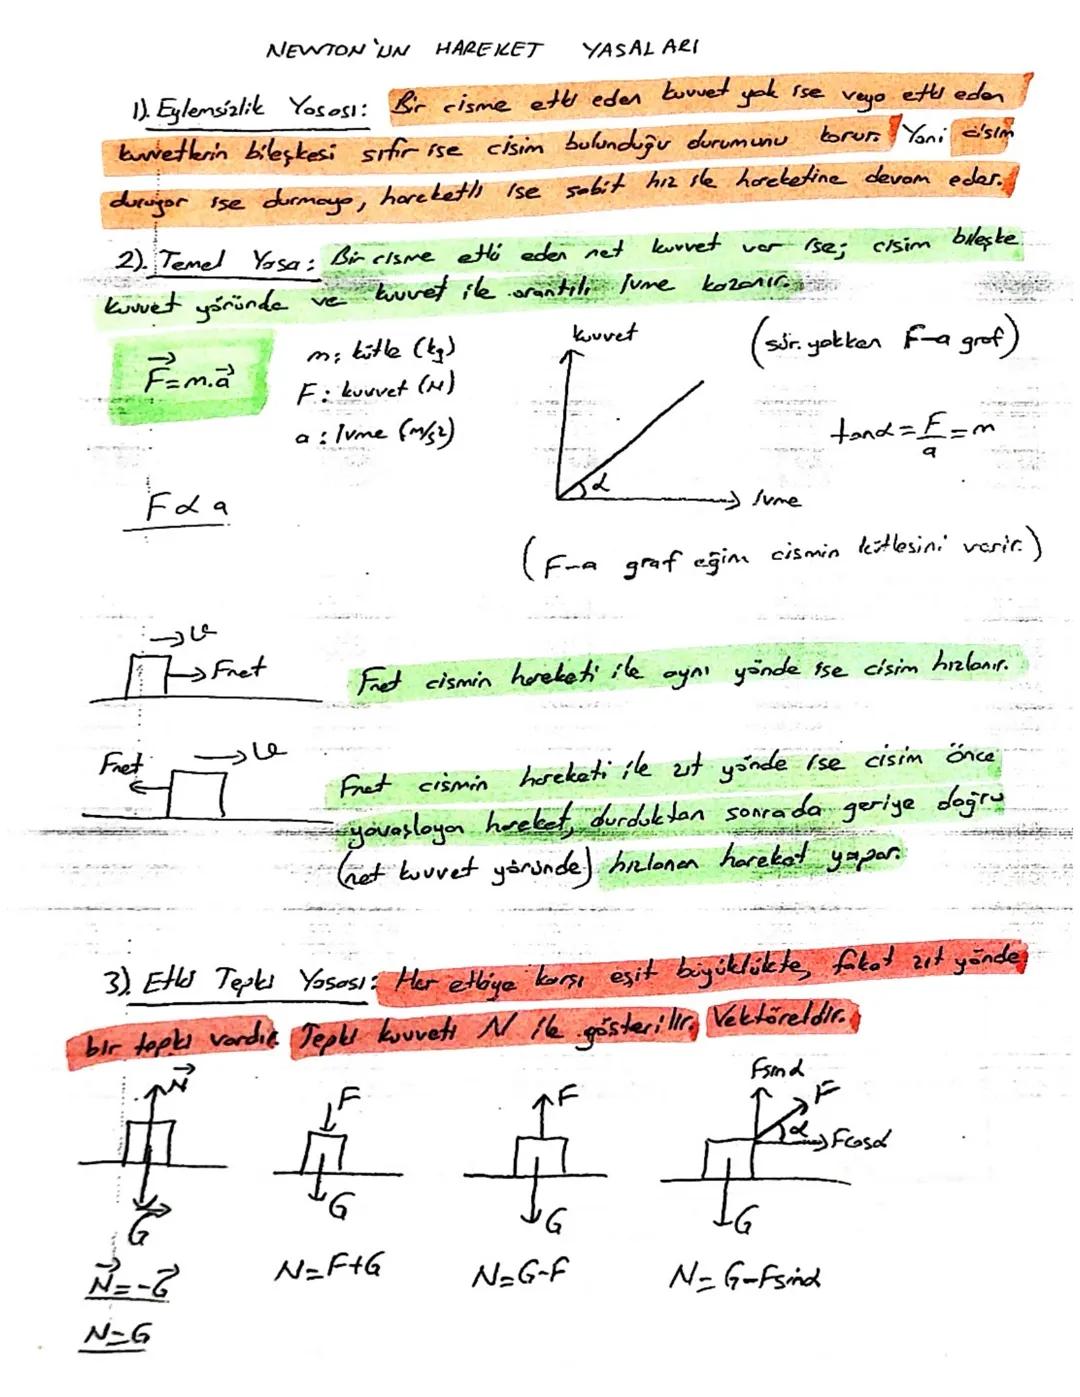 NEWTON'UN HAREKET YASALARI
1). Eylemsizlik Yasası: Bir cisme etki eden kuvvet yok ise veya etki eden
kuvvetlerin bileşkesi sıfır ise cisim bulunduğu durumunu korur. Yani cisim
duruyor ise durmaya, hareketli ise sabit hız ile hareketine devam eder.
2). Temel Yasa: Bir cisme etki eden net kuvvet var ise; cisim bileşke
kuvvet yönünde ve kuvvet ile orantılı ivme kazanır.
F=m.a
m: kütle (kg)
F: kuvvet (N)
a: ivme (m/s2)
F α a
kuvvet
α
ivme
(sür. yokken F-a graf)
tanα = F/a = m
(F-a graf eğim cismin kütlesini verir.)
v
Fnet
Fnet cismin hareketi ile aynı yönde ise cisim hızlanır.
Fnet
v
Fnet cismin hareketi ile zıt yönde ise cisim önce
yavaşlayan hareket, durduktan sonrada geriye doğru
(net kuvvet yönünde) hızlanan hareket yapar.
3). Etki Tepki Yasası: Her etkiye karşı eşit büyüklükte, fakat zıt yönde
bir tepki vardır. Tepki kuvveti N ile gösterilir. Vektöreldir.
N
F
F
Fsinα
F
α
Fcosα
G
G
G
G
N=-G
N=F+G
N=G-F
N=G-Fsinα
N=G